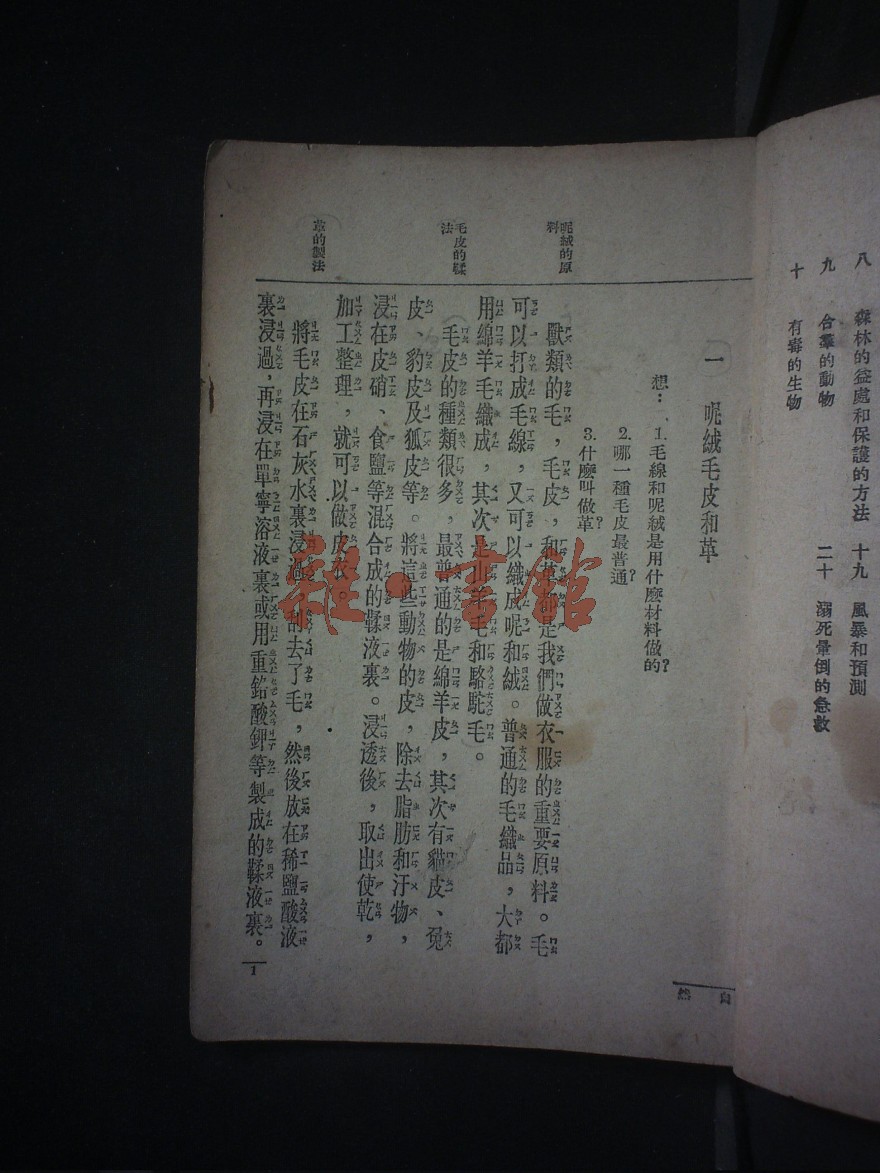 八　森林的益處和保護的方法　十九　風暴和預測
九　合羣的動物　二十　溺死暈倒的急救
十　有毒的生物
自然
一　呢絨毛皮和革
想：1.毛線和呢絨是用什麼材料做的？
2.哪一種毛皮最普通？
3.什麼叫做革？
呢絨的原料
獸類的毛，毛皮，和革都是我們做衣服的重要原料。毛
可以打成毛線，又可以織成呢和絨。普通的毛織品，大都
用綿羊毛織成，其次是山羊毛和駱駝毛。
毛皮的鞣法
毛皮的種類很多，最普通的是綿羊皮，其次有貓皮、兔
皮、豹皮及狐皮等。將這些動物的皮，除去脂肪和汙物，
浸在皮硝、食鹽等混合成的鞣液裏。浸透後，取出使乾，
加工整理，就可以做皮衣。
革的製法
將毛皮在石灰水裏浸過，刮去了毛，然後放在稀鹽酸液
裏浸過，再浸在單寧溶液裏或用重鉻酸鉀等製成的鞣液裏。
1
雜·書館